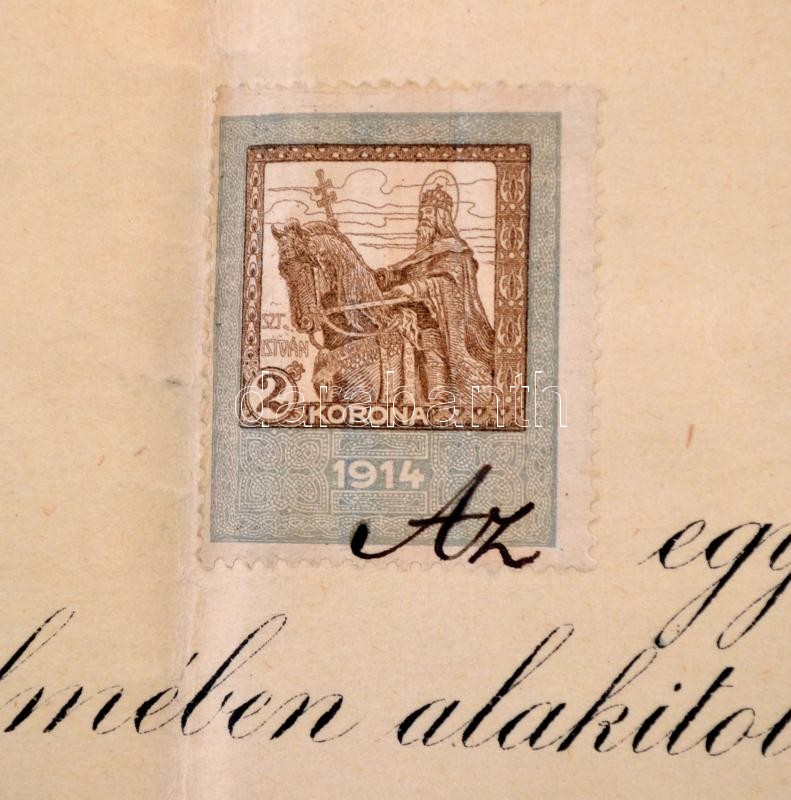 SZT.
ISTVÁN
2 KORONA
darabanth
1914
Az egy
lmében alakitot